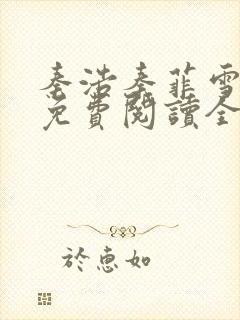 秦浩秦菲雪
免費閱讀全
於惠如